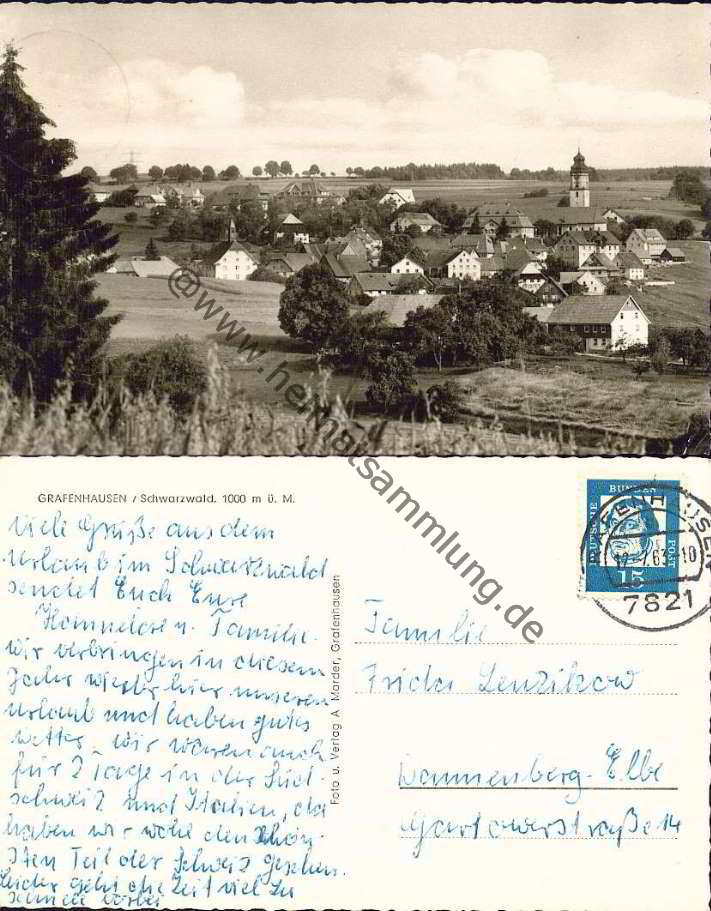 @www.heimatsammlung.de
GRAFENHAUSEN / Schwarzwald. 1000 m ü. M.
Viele Grüße aus dem
Urlaub im Schwarzwald
sendet Euch Eure
Hannelore u. Familie.
Wir verbringen in diesem
Jahr wieder hier unseren
Urlaub und haben gutes
Wetter. Wir waren auch
für 2 Tage in der Süd-
schweiz und Italien, da
haben wir wohl den schön-
sten Teil der Schweiz gesehen.
Leider geht die Zeit viel zu
schnell vorbei
Foto u. Verlag A Morder, Grafenhausen
DEUTSCHE
BUNDES
POST
15
GRAFENHAUSEN
7821
Familie
Frida Lenzikow
Dannenberg-Elbe
Gartowerstraße 14